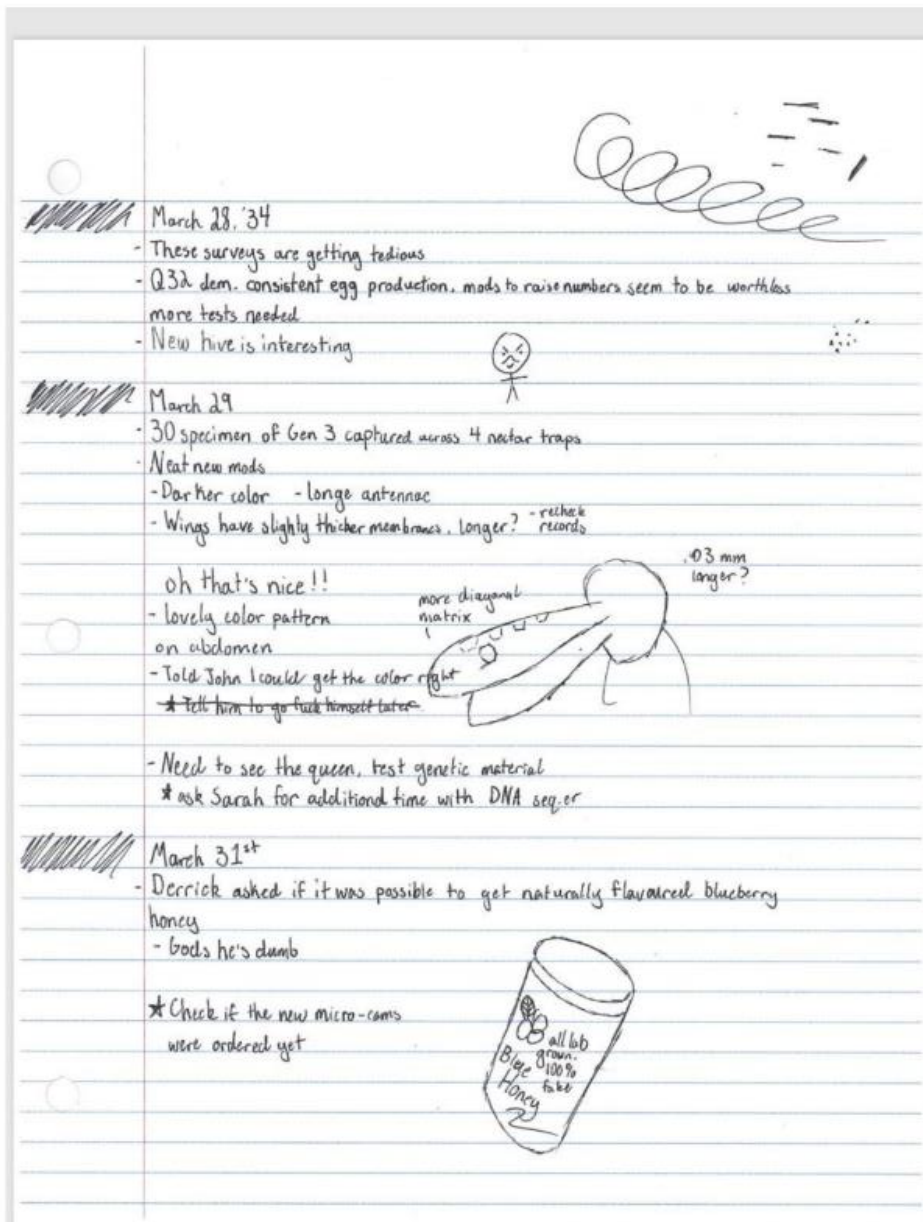 March 28, '34
- These surveys are getting tedious
- Q32 dem. consistent egg production, mods to raise numbers seem to be worthless
more tests needed
- New hive is interesting
March 29
- 30 specimen of Gen 3 captured across 4 nectar traps
- Neat new mods
- Darker color - longe antennae
- Wings have slightly thicker membranes, longer? - recheck
records
.03 mm
longer?
oh that's nice!!
more diagonal
matrix
- lovely color pattern
on abdomen
- Told John I could get the color right
* Tell him to go fuck himself later
- Need to see the queen, test genetic material
* ask Sarah for additional time with DNA seq.er
March 31st
- Derrick asked if it was possible to get naturally flavoured blueberry
honey
- Gods he's dumb
* Check if the new micro-cams
were ordered yet
all lab
grown.
100%
fake
Blue
Honey